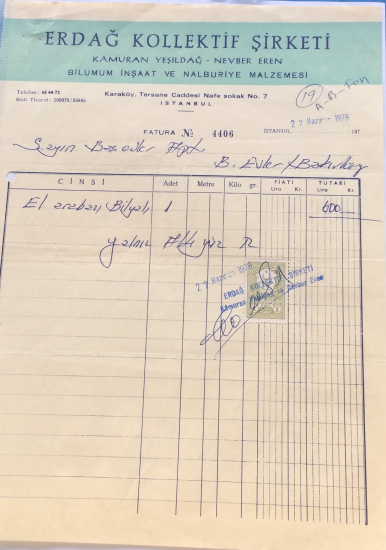 ERDAĞ KOLLEKTİF ŞİRKETİ
KAMURAN YEŞİLDAĞ - NEVBER EREN
BİLUMUM İNŞAAT VE NALBURİYE MALZEMESİ
Telefon: 43 44 72
Sicil Ticaret:
Karaköy, Tersane Caddesi Nafe sokak No. 7
İSTANBUL
19
A-B-
27 Haziran 1978
FATURA № 4406 İSTANBUL, 197
Sayın
B. Evler / Bakırköy
CİNSİ Adet Metre Kilo gr. FİATI Lira Kr. TUTARI Lira Kr.
El arabası Bilyalı 1 600
Yalnız Altı yüz TL
27 Haziran 1978
ERDAĞ KOLLEKTİF ŞİRKETİ
Kamuran Yeşildağ ve Nevber Eren